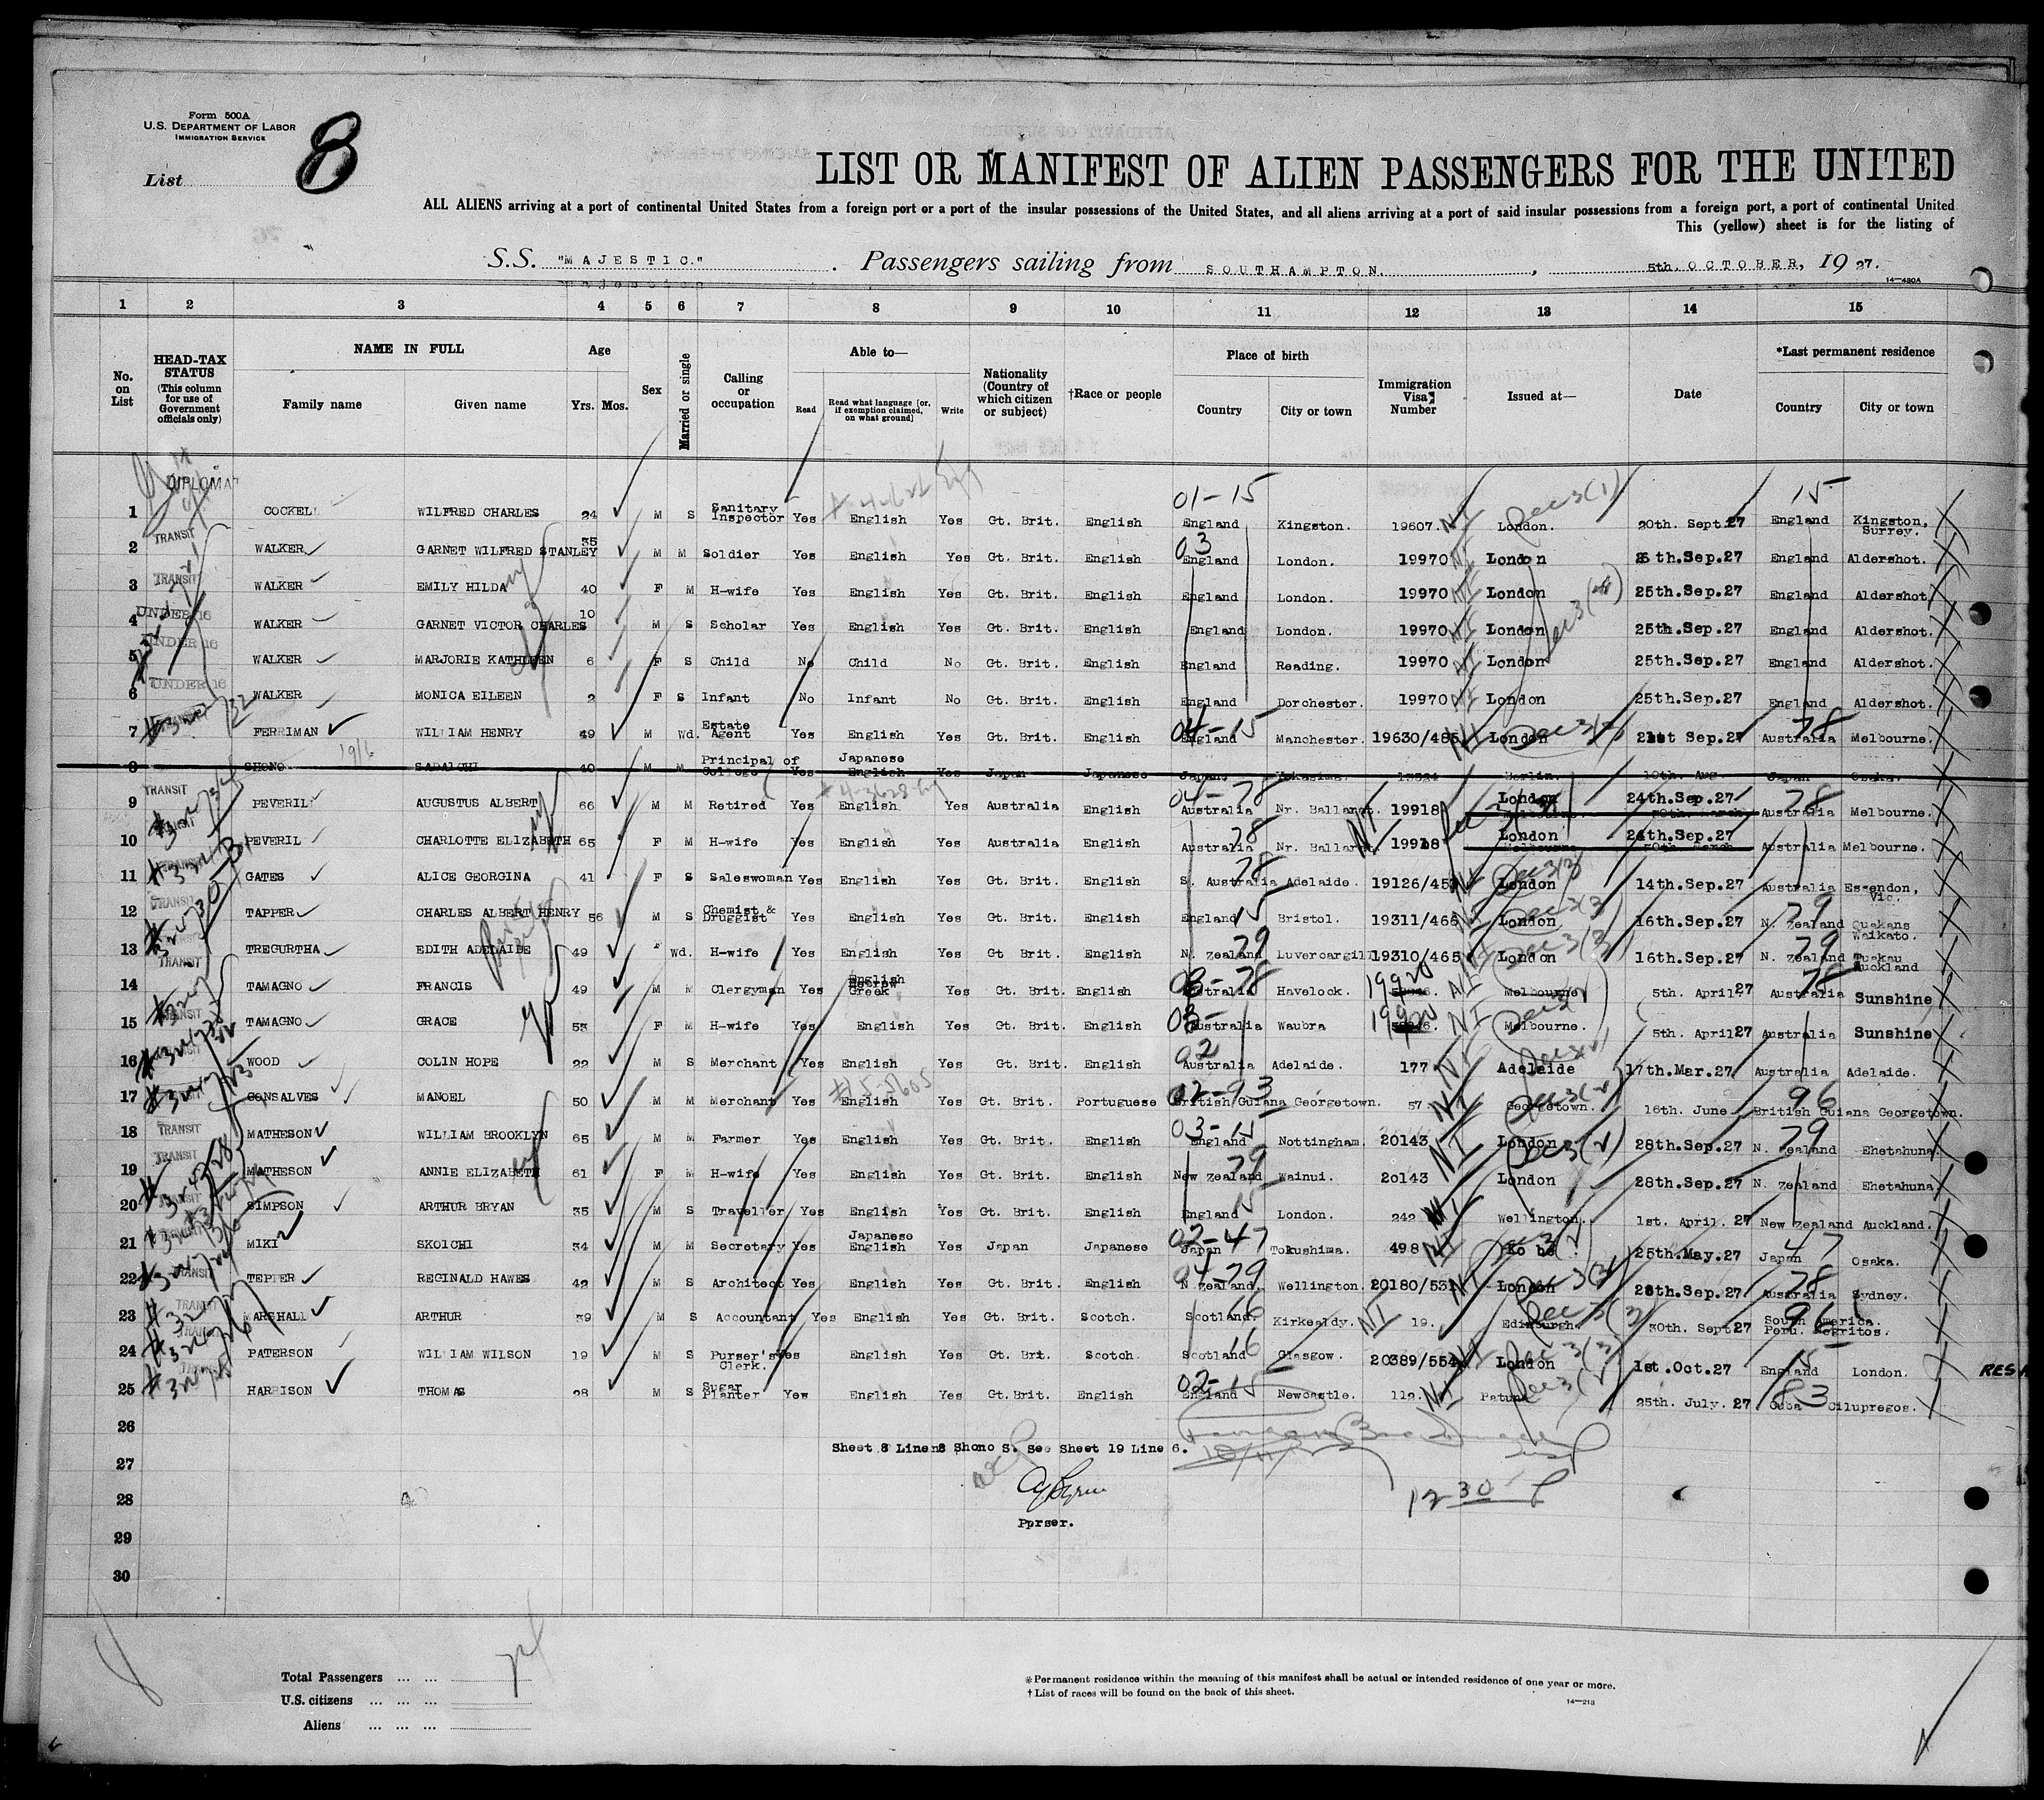 Form 500A
U.S. DEPARTMENT OF LABOR
IMMIGRATION SERVICE
List 8
LIST OR MANIFEST OF ALIEN PASSENGERS FOR THE UNITED
ALL ALIENS arriving at a port of continental United States from a foreign port or a port of the insular possessions of the United States, and all aliens arriving at a port of said insular possessions from a foreign port, a port of continental United
This (yellow) sheet is for the listing of
S.S. "MAJESTIC." Passengers sailing from SOUTHAMPTON. , 5th. OCTOBER, 19 27.
14—480A
1 2 3 4 5 6 7 8 9 10 11 12 13 14 15
No. on List
HEAD-TAX STATUS (This column for use of Government officials only)
NAME IN FULL Family name Given name
Age Yrs. Mos.
Sex
Married or single
Calling or occupation
Able to— Read Read what language [or, if exemption claimed, on what ground] Write
Nationality (Country of which citizen or subject)
†Race or people
Place of birth Country City or town
Immigration Visa Number
Issued at—
Date
*Last permanent residence Country City or town
DIPLOMAT 01-15 15
1 COCKELL WILFRED CHARLES 24 M S Sanitary Inspector Yes English Yes Gt. Brit. English England Kingston. 19607. NI London. 20th. Sept.27 England Kingston, Surrey.
2 TRANSIT WALKER GARNET WILFRED STANLEY 35 M M Soldier Yes English Yes Gt. Brit. English 03 England London. 19970 NI London th.Sep.27 England Aldershot.
3 TRANSIT WALKER EMILY HILDA 40 F M H-wife Yes English Yes Gt. Brit. English England London. 19970 NI London 25th.Sep.27 England Aldershot.
4 UNDER 16 WALKER GARNET VICTOR CHARLES 10 M S Scholar Yes English Yes Gt. Brit. English England London. 19970 NI London 25th.Sep.27 England Aldershot.
5 UNDER 16 WALKER MARJORIE KATHLEEN 6 F S Child No Child No Gt. Brit. English England Reading. 19970 NI London 25th.Sep.27 England Aldershot.
6 UNDER 16 WALKER MONICA EILEEN 2 F S Infant No Infant No Gt. Brit. English England Dorchester. 19970 NI London 25th.Sep.27 England Aldershot.
7 TRANSIT FERRIMAN WILLIAM HENRY 49 M Wd. Estate Agent Yes English Yes Gt. Brit. English 04-15 England Manchester. 19630/485 NI London 21st Sep.27 78 Australia Melbourne.
8 SHONO 19/6 SADAICHI 40 M M Principal of College Yes Japanese English Yes Japan Japanese Japan. Berlin. 10th. Aug Japan Osaka.
9 TRANSIT PEVERIL AUGUSTUS ALBERT 66 M M Retired Yes English Yes Australia English 04-78 Australia Nr. Ballarat. 19918 London 24th.Sep.27 78 Australia Melbourne.
10 PEVERIL CHARLOTTE ELIZABETH 65 F M H-wife Yes English Yes Australia English 78 Australia Nr. Ballarat 19918 NI London 24th.Sep.27 Australia Melbourne.
11 TRANSIT GATES ALICE GEORGINA 41 F S Saleswoman Yes English Yes Gt. Brit. English 78 S. Australia Adelaide. 19126/453 NI London 14th.Sep.27 Australia Essendon, Vic.
12 TRANSIT TAPPER CHARLES ALBERT HENRY 56 M S Chemist & Druggist Yes English Yes Gt. Brit. English England 15 Bristol. 19311/466 NI London 16th.Sep.27 79 N. Zealand Quakans Waikato.
13 TREGURTHA EDITH ADELAIDE 49 F Wd. H-wife Yes English Yes Gt. Brit. English 79 N. Zealand Luvercargill 19310/465 London 16th.Sep.27 79 N. Zealand Tuakau Auckland
14 TRANSIT TAMAGNO FRANCIS 49 M M Clergyman Yes English Hebrew Greek Yes Gt. Brit. English 03-78 Australia Havelock. 19920 NI Melbourne 5th. April 27 78 Australia Sunshine
15 TAMAGNO GRACE 53 F M H-wife Yes English Yes Gt. Brit. English Australia Waubra 19920 NI Melbourne. 5th. April 27 Australia Sunshine
16 WOOD COLIN HOPE 22 M S Merchant Yes English Yes Gt. Brit. English 02 Australia Adelaide. 177 NI Adelaide 17th.Mar.27 Australia Adelaide.
17 GONSALVES MANOEL 50 M M Merchant Yes English Yes Gt. Brit. Portuguese 02-93 British Guiana Georgetown. 57 NI Georgetown. 16th. June 96 British Guiana Georgetown.
18 TRANSIT MATHESON WILLIAM BROOKLYN 65 M M Farmer Yes English Yes Gt. Brit. English 03-15 England Nottingham. 20143 NI London 28th.Sep.27 79 N. Zealand Ehetahuna.
19 TRANSIT MATHESON ANNIE ELIZABETH 61 F M H-wife Yes English Yes Gt. Brit. English 79 New Zealand Wainui. 20143 London 28th.Sep.27 N. Zealand Ehetahuna
20 SIMPSON ARTHUR BRYAN 35 M S Traveller Yes English Yes Gt. Brit. English 15 England London. 242 NI Wellington. 1st. April. 27 New Zealand Auckland.
21 MIKI SKOICHI 34 M M Secretary Yes Japanese English Yes Japan Japanese 02-47 Japan Tokushima. 498 NI Kobe 25th.May.27 47 Japan Osaka.
22 TRANSIT TEPPER REGINALD HAWES 42 M S Architect Yes English Yes Gt. Brit. English 04-79 N. Zealand. Wellington. 20180/531 NI London 28th.Sep.27 78 Australia Sydney.
23 TRANSIT MARSHALL ARTHUR 39 M S Accountant Yes English Yes Gt. Brit. Scotch. 66 Scotland. Kirkealdy. NI 19. Edinburgh 30th. Sept 27 96 South America. Peru. Negritos.
24 PATERSON WILLIAM WILSON 19 M S Purser's Clerk. Yes English Yes Gt. Brit. Scotch. 16 Scotland Glasgow. 20389/554 NI London 1st.Oct.27 15 England London. RES
25 HARRISON THOMAS 28 M S Sugar Planter Yes English Yes Gt. Brit. English 02-15 England Newcastle. 112. NI 25th. July. 27 83 Cuba Cilupregos.
26
Sheet 8 Line 8 Shono S. See Sheet 19 Line 6.
27
28 12 30
Purser.
29
30
Total Passengers ... ...
U.S. citizens ... ... ...
Aliens ... ... ...
*Permanent residence within the meaning of this manifest shall be actual or intended residence of one year or more.
†List of races will be found on the back of this sheet.
14—213